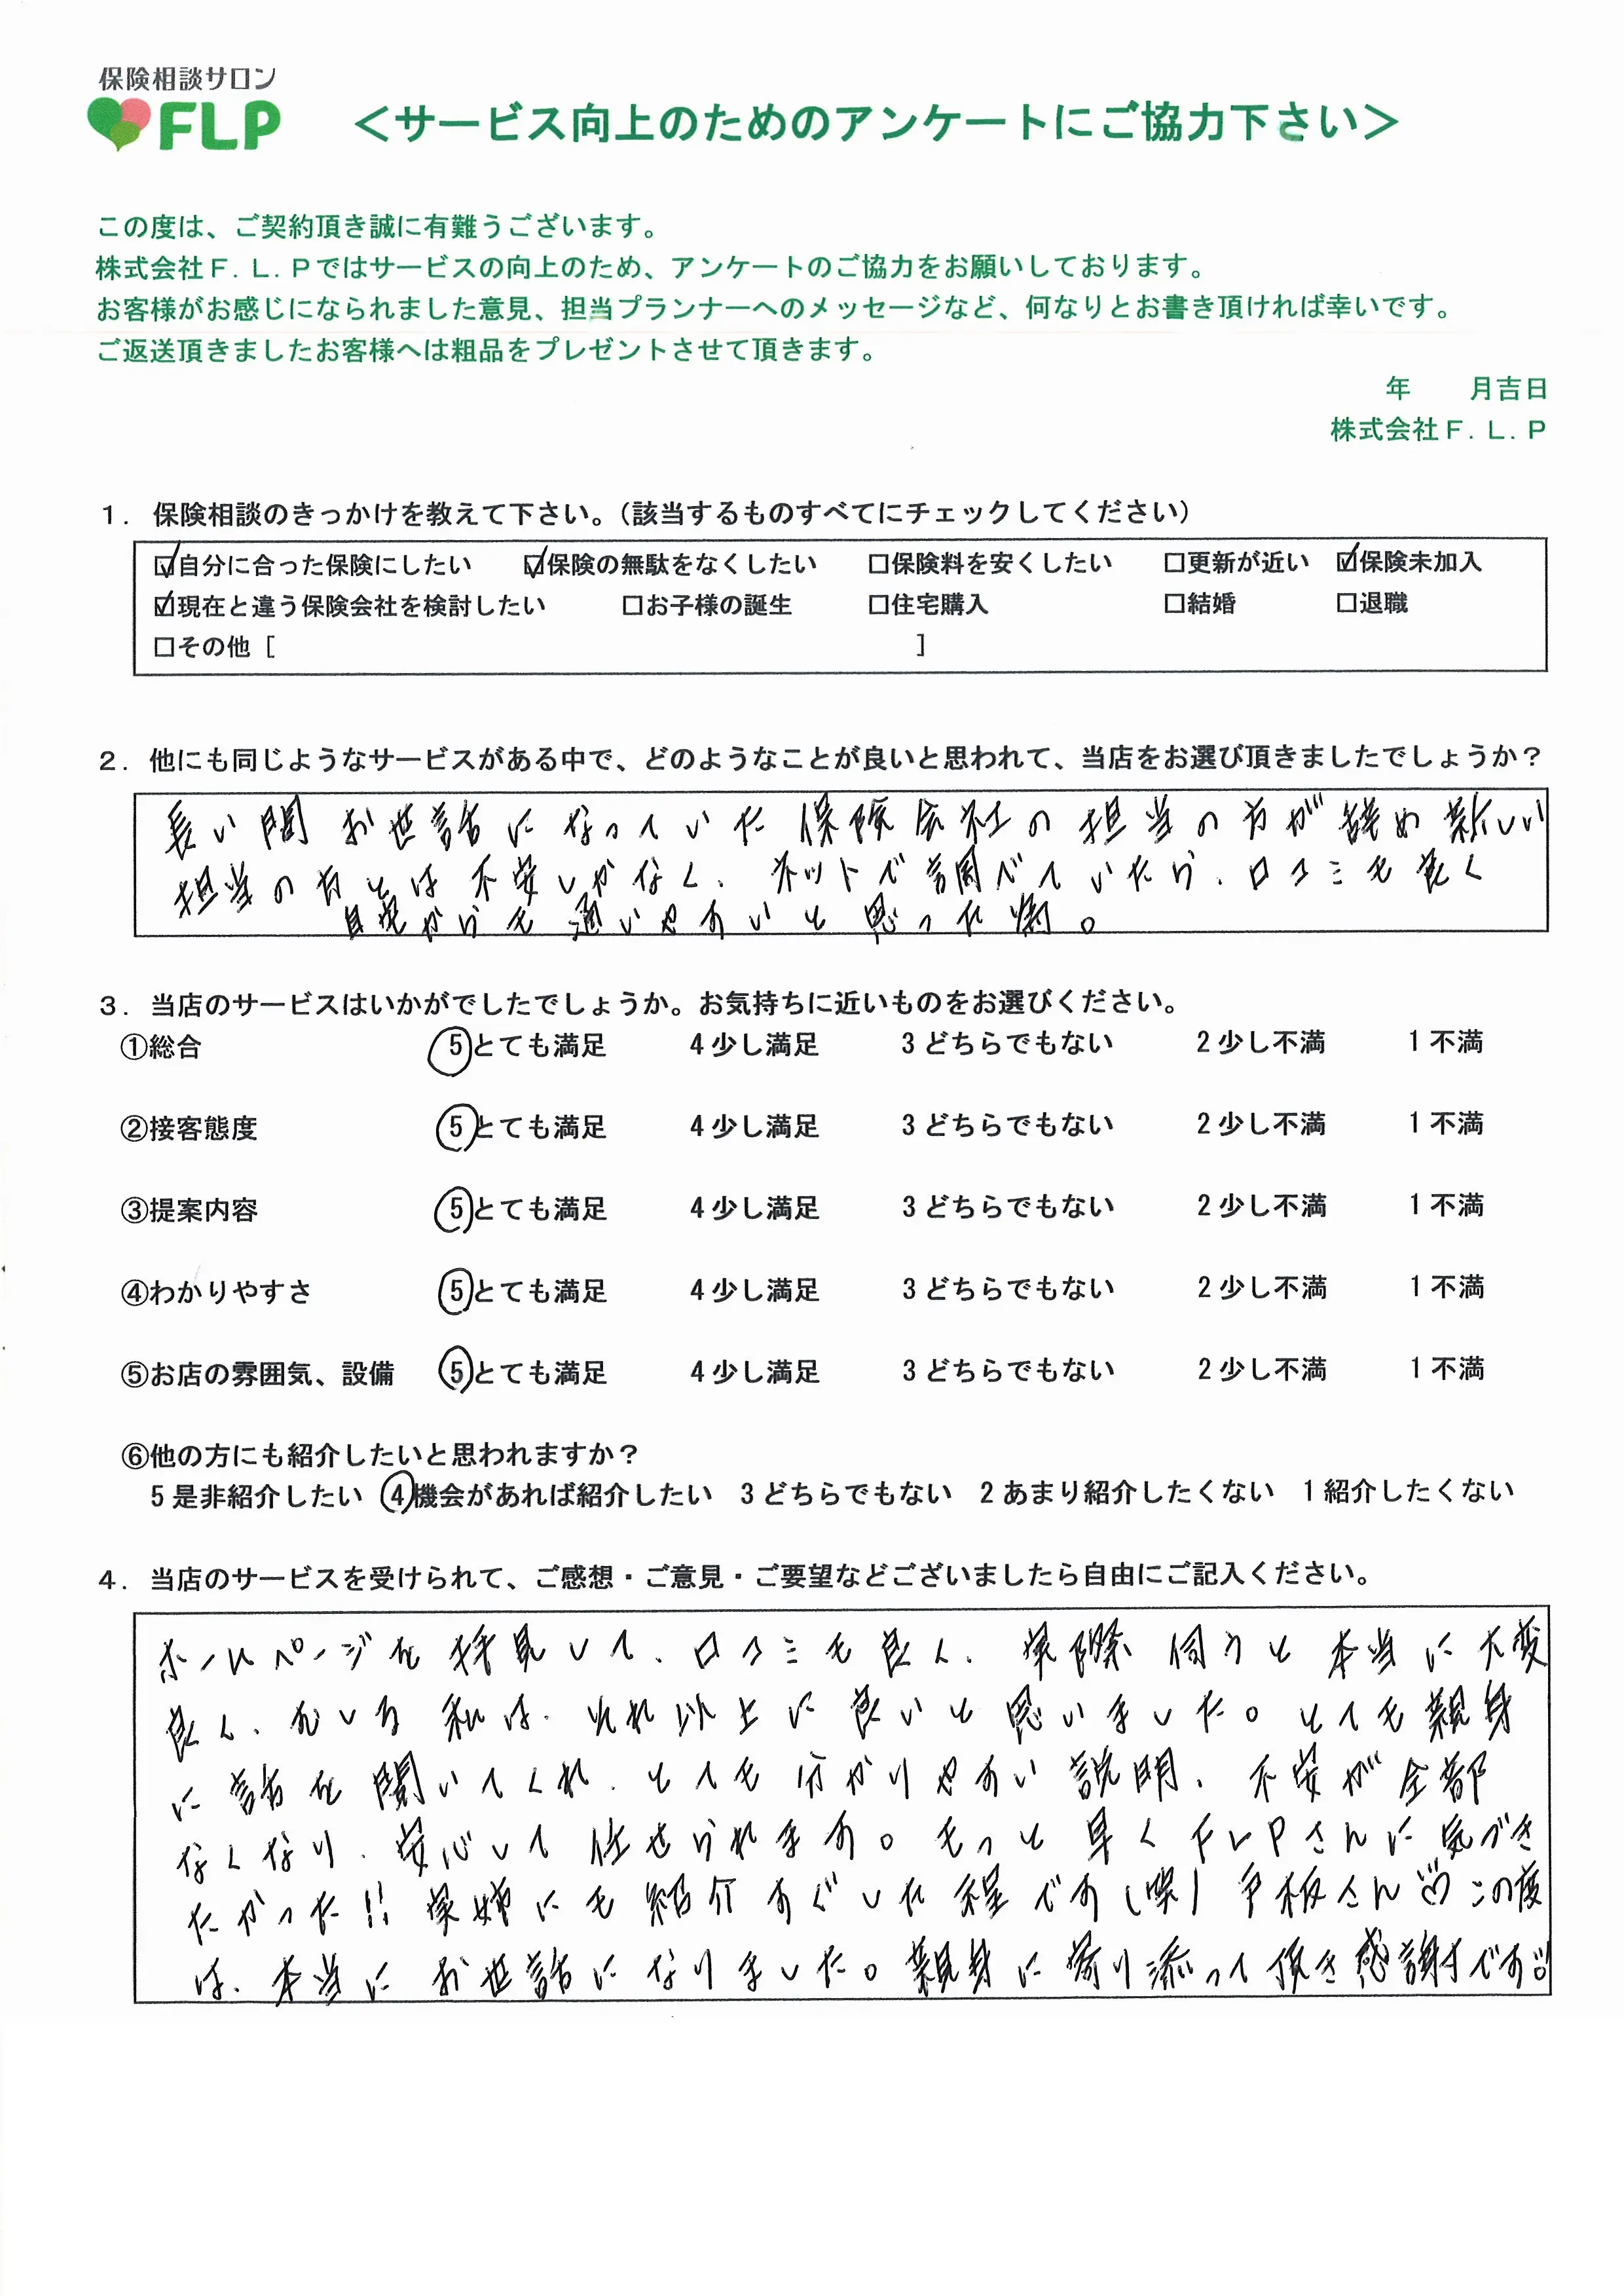 保険相談サロン
FLP
＜サービス向上のためのアンケートにご協力下さい＞
この度は、ご契約頂き誠に有難うございます。
株式会社Ｆ．Ｌ．Ｐではサービスの向上のため、アンケートのご協力をお願いしております。
お客様がお感じになられました意見、担当プランナーへのメッセージなど、何なりとお書き頂ければ幸いです。
ご返送頂きましたお客様へは粗品をプレゼントさせて頂きます。
年　　月吉日
株式会社Ｆ．Ｌ．Ｐ
１．保険相談のきっかけを教えて下さい。（該当するものすべてにチェックしてください）
☑自分に合った保険にしたい　☑保険の無駄をなくしたい　□保険料を安くしたい　□更新が近い　☑保険未加入
☑現在と違う保険会社を検討したい　□お子様の誕生　□住宅購入　□結婚　□退職
□その他［　　　］
２．他にも同じようなサービスがある中で、どのようなことが良いと思われて、当店をお選び頂きましたでしょうか？
長い間 お世話になっていた保険会社の担当の方が辞め新しい
担当の方とは不安しかなく、ネットで調べていたら、口コミも良く
自宅からも通いやすいと思った為。
３．当店のサービスはいかがでしたでしょうか。お気持ちに近いものをお選びください。
①総合　5とても満足　4少し満足　3どちらでもない　2少し不満　1不満
②接客態度　5とても満足　4少し満足　3どちらでもない　2少し不満　1不満
③提案内容　5とても満足　4少し満足　3どちらでもない　2少し不満　1不満
④わかりやすさ　5とても満足　4少し満足　3どちらでもない　2少し不満　1不満
⑤お店の雰囲気、設備　5とても満足　4少し満足　3どちらでもない　2少し不満　1不満
⑥他の方にも紹介したいと思われますか？
5是非紹介したい　4機会があれば紹介したい　3どちらでもない　2あまり紹介したくない　1紹介したくない
４．当店のサービスを受けられて、ご感想・ご意見・ご要望などございましたら自由にご記入ください。
ホームページを拝見して、口コミも良く、実際伺うと本当に大変
良く、むしろ私は、それ以上に良いと思いました。とても親身
に話を聞いてくれ、とても分かりやすい説明、不安が全部
なくなり、安心して任せられます。もっと早くFLPさんに気づき
たかった!! 実姉にも紹介すぐした程です(笑) 戸板さん♡この度
は、本当にお世話になりました。親身に寄り添って頂き感謝です!!